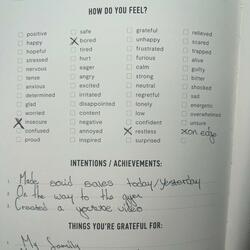 HOW DO YOU FEEL?
positive safe grateful relieved
happy bored unhappy scared
hopeful tired frustrated trapped
stressed hurt furious alive
nervous eager calm guilty
tense angry strong bitter
anxious excited neutral shocked
determined irritated regretful sad
glad disappointed lonely energetic
worried content low overwhelmed
insecure negative confident unsure
confused annoyed restless on edge
proud inspired
INTENTIONS / ACHIEVEMENTS:
1. Made said sales today/yesterday
2. On the way to the gym
3. Created a youtube video
THINGS YOU'RE GRATEFUL FOR:
1. My family